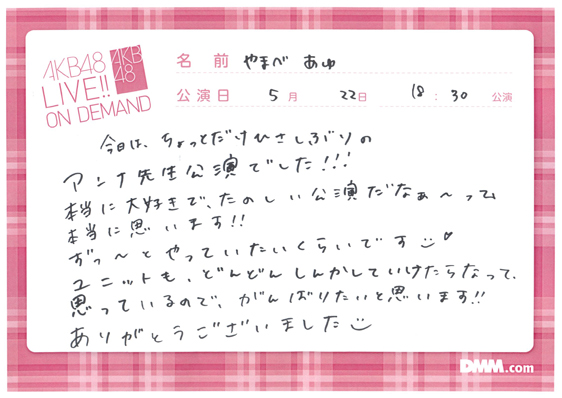 AKB48
LIVE!!
ON DEMAND
AKB
48
名前 やまべ あゆ
公演日 5月 22日 18:30 公演
今日は、ちょっとだけひさしぶりの
アンナ先生公演でした!!!
本当に大好きで、たのしい公演だなぁ〜って
本当に思います!!
ずっ〜とやっていたいくらいです
ユニットも、どんどんしんかしていけたらなって、
思っているので、がんばりたいと思います!!
ありがとうございました
DMM.com